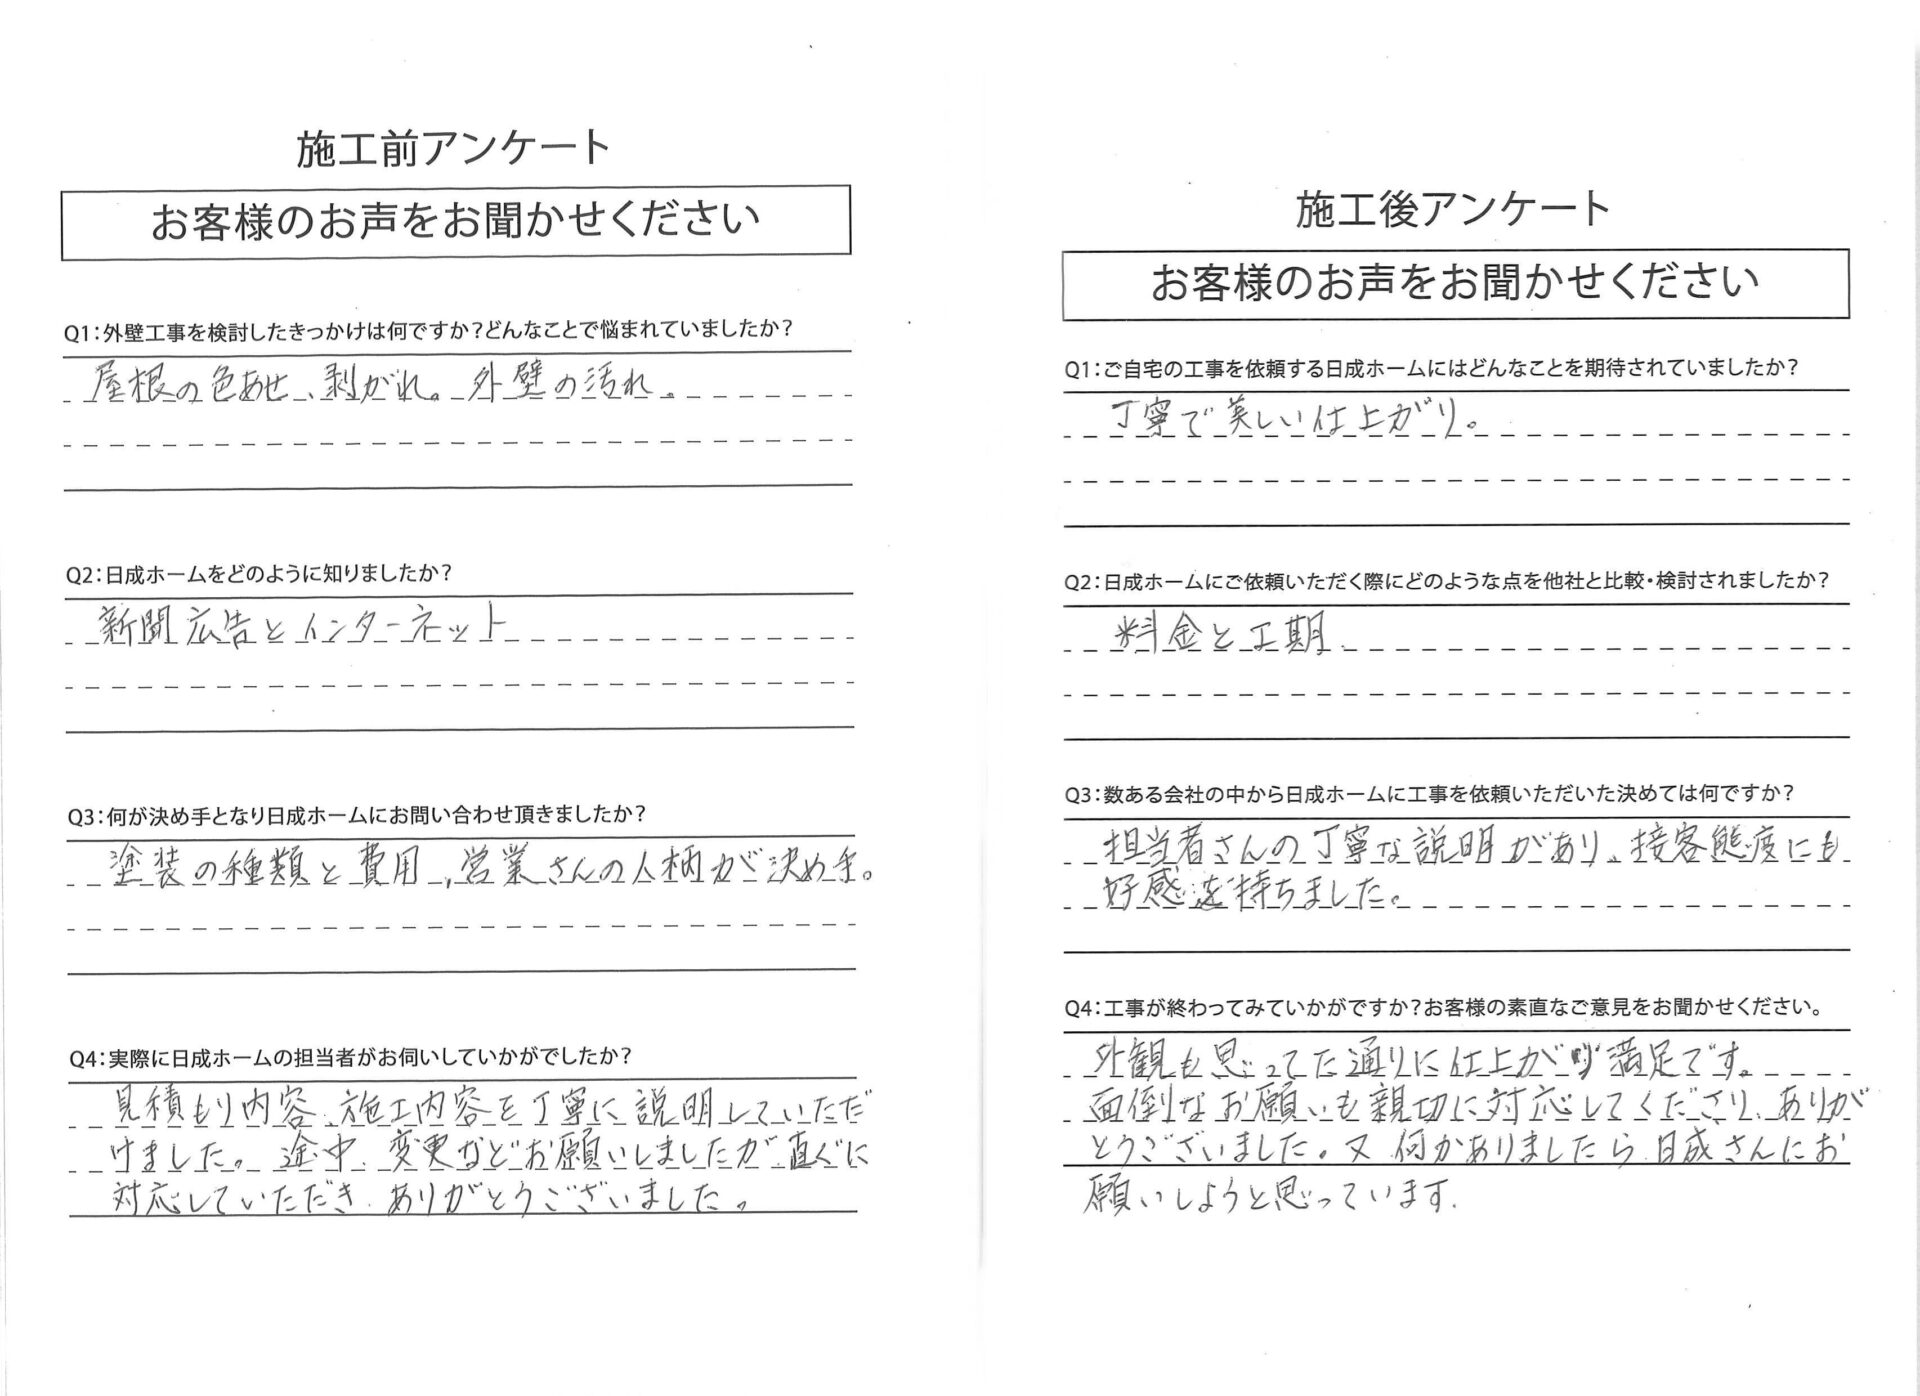 施工前アンケート
お客様のお声をお聞かせください
Q1:外壁工事を検討したきっかけは何ですか?どんなことで悩まれていましたか?
屋根の色あせ、剥がれ。外壁の汚れ。
Q2:日成ホームをどのように知りましたか?
新聞広告とインターネット
Q3:何が決め手となり日成ホームにお問い合わせ頂きましたか?
塗装の種類と費用、営業さんの人柄が決め手。
Q4:実際に日成ホームの担当者がお伺いしていかがでしたか?
見積もり内容、施工内容を丁寧に説明していただ
けました。途中、変更などお願いしましたが、直ぐに
対応していただき、ありがとうございました。
施工後アンケート
お客様のお声をお聞かせください
Q1:ご自宅の工事を依頼する日成ホームにはどんなことを期待されていましたか?
丁寧で美しい仕上がり。
Q2:日成ホームにご依頼いただく際にどのような点を他社と比較・検討されましたか?
料金と工期、
Q3:数ある会社の中から日成ホームに工事を依頼いただいた決めては何ですか?
担当者さんの丁寧な説明があり、接客態度にも
好感を持ちました。
Q4:工事が終わってみていかがですか?お客様の素直なご意見をお聞かせください。
外観も思ってた通りに仕上がり満足です。
面倒なお願いも親切に対応してくださり、ありが
とうございました。又、何かありましたら、日成さんにお
願いしようと思っています.